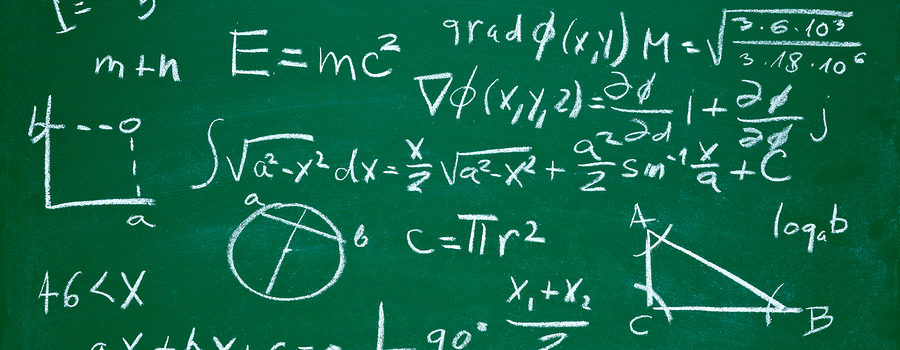 m+n
E=mc²
grad ϕ(x,y)
M=√(3·6·10³/3·18·10⁶)
∇ϕ(x,y,z)=∂ϕ/∂d i+∂ϕ/∂ϕ j
b
a
∫√a²-x² dx=x/2 √a²-x²+a²/2 sin⁻¹ x/a+C
a
b
c=πr²
A
C
B
logₐb
46<X
x₁+x₂/2
90°